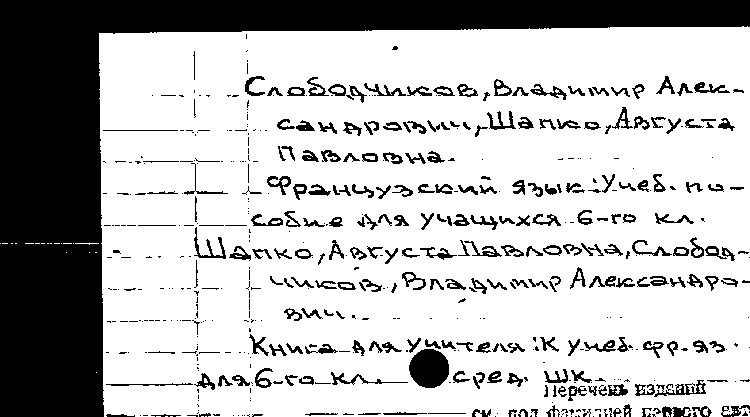 Слободчиков, Владимир Алек-
сандрович, Шапко, Августа
Павловна.
Французский язык: Учеб. по-
собие для учащихся 6-го кл.
Шапко, Августа Павловна, Слобод-
чиков, Владимир Александро-
вич.
Книга для учителя: К учеб. фр. яз.
для 6-го кл. сред. шк.
Перечень изданий
см. под фамилией первого авт